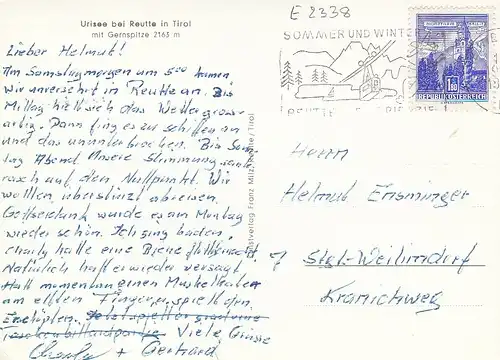 Urisee bei Reutte in Tirol
mit Gernspitze 2163 m
E 2338
SOMMER UND WINTER
REUTTE
1.80
REPUBLIK ÖSTERREICH
Lieber Helmut!
Am Samstagmorgen um 5°° kamen
wir unversehrt in Reutte an. Bis
Mittag hielt sich das Wetter gross-
artig. Dann fing es zu schiffen an
und das ununterbrochen. Bis Sonn-
tag Abend. Unsere Stimmung sank
rasch auf den Nullpunkt. Wir
wollten, überstürzt abreisen.
Gottseidank wurde es am Montag
wieder schön. Ich ging baden,
charly hatte eine Biene
Natürlich hat er wieder versagt
Hat momentan einen Muskelkater
am elften Finger, spielt den
Erschöpften.
Taschenbillardpartie Viele Grüsse
Charly + Gerhard
Kunstverlag Franz Milz, Reutte/Tirol
Herrn
Helmut Ensminger
7 Stgt.-Weilimdorf
Kranichweg